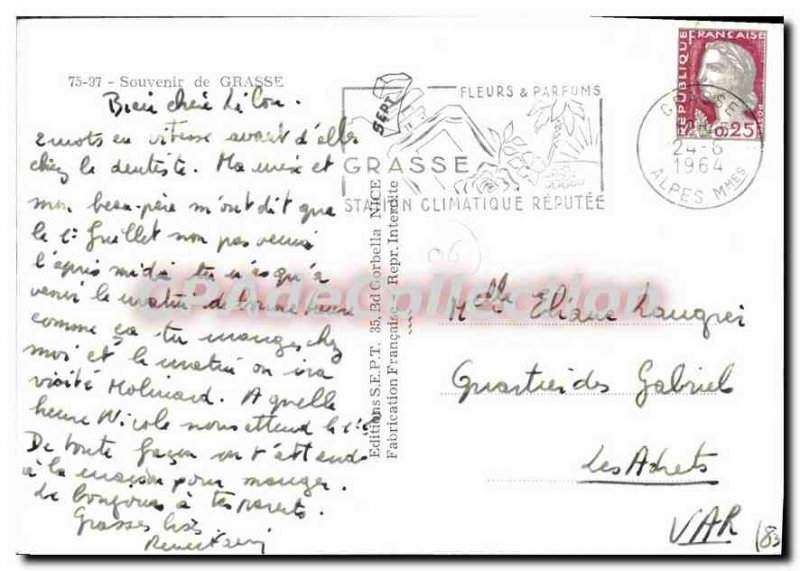 75-97 - Souvenir de GRASSE
Bien chère Lilou.
2 mots en vitesse avant d'aller
chez le dentiste. Ma mère et
mon beau-père m'ont dit que
le 1er Juillet non pas venir
l'après midi tu n'as qu'à
venir le matin de bonne heure
comme ça tu manges chez
moi et le matin on ira
visité Molinard. A quelle
heure Nicole nous attend le 1er
De toute façon on t'attend
à la maison pour manger.
Le bonjour à tes parents.
Grosses bises
Editions S.E.P.T. 35, Bd Gorbella NICE
Fabrication Française - Repr. Interdite
SEPT
FLEURS & PARFUMS
GRASSE
STATION CLIMATIQUE RÉPUTÉE
REPUBLIQUE FRANCAISE
0,25
GRASSE
24-6
1964
ALPES MMES
06
CPAdeCollection
Melle Eliane Laugier
Quartier des Gabriel
Les Adrets
VAR
(83